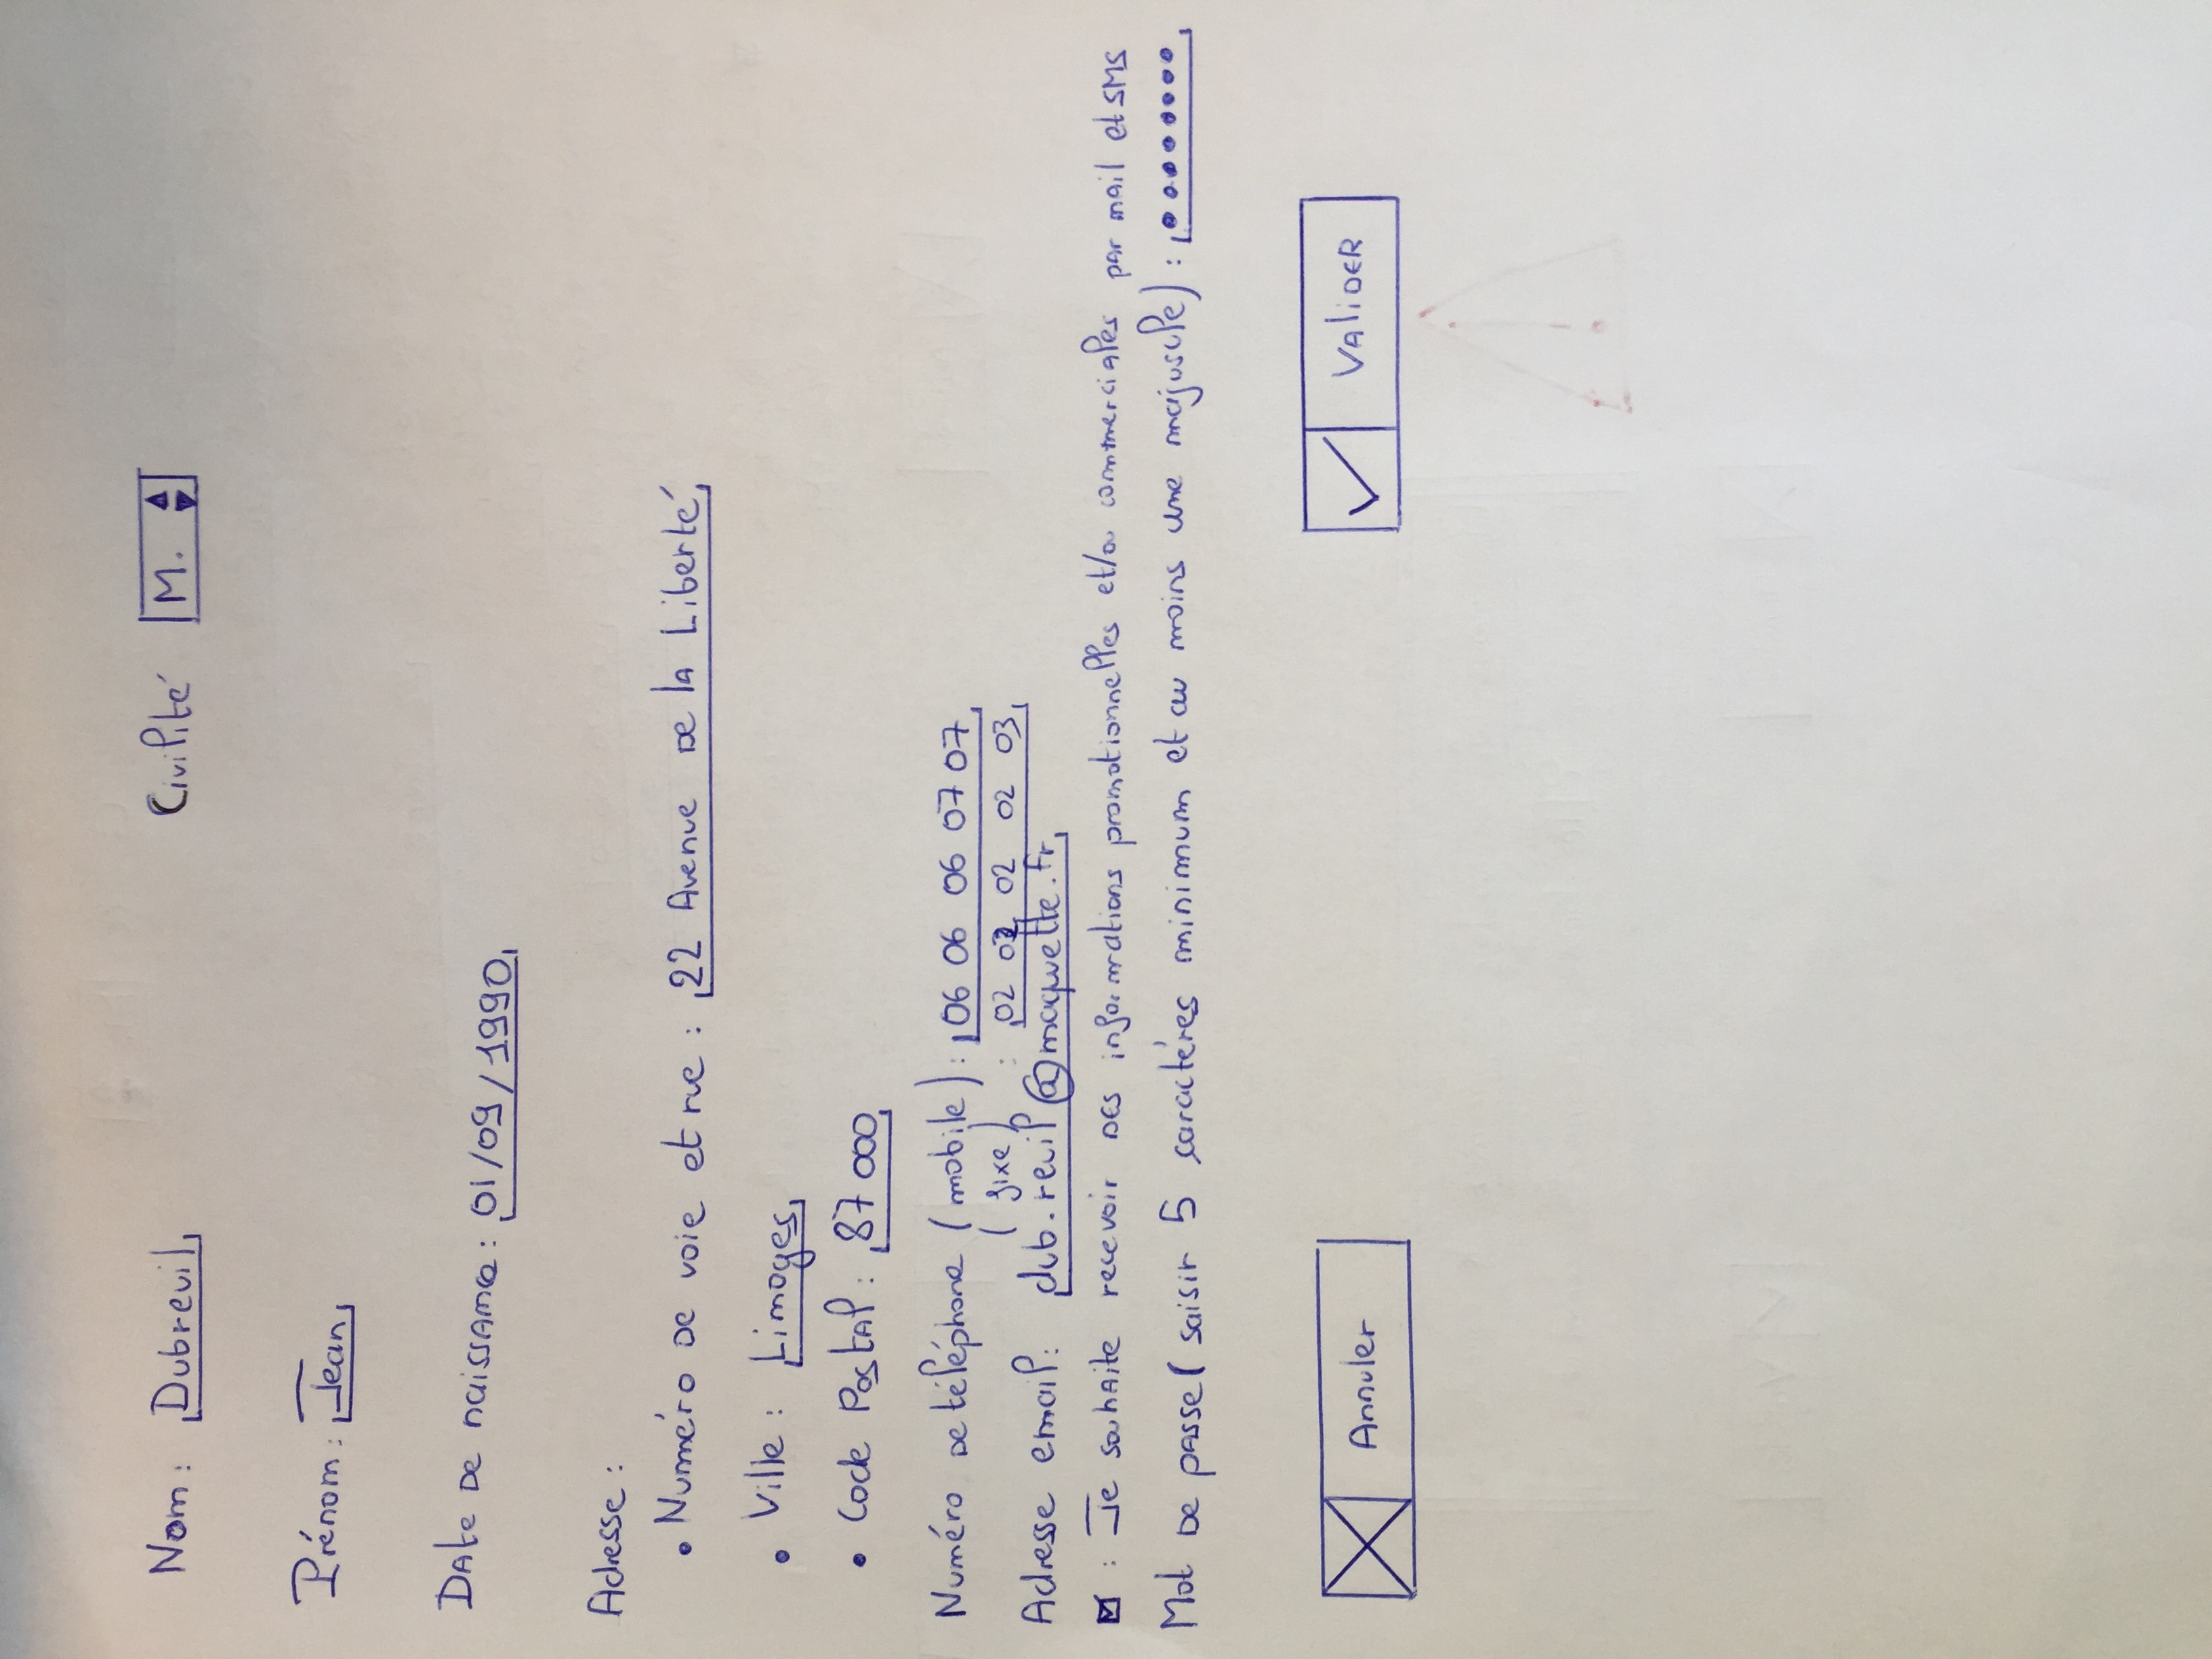 Nom : Dubreuil Civilité M.
Prénom : Jean
Date de naissance : 01/09/1990
Adresse :
• Numéro de voie et rue : 22 Avenue de la Liberté
• Ville : Limoges
• Code Postal : 87 000
Numéro de téléphone (mobile) : 06 06 06 07 07
(fixe) : 02 02 02 02 03
Adresse email : dub.reuil@maquette.fr
☑ : Je souhaite recevoir des informations promotionnelles et/ou commerciales par mail et SMS
Mot de passe (saisir 5 caractères minimum et au moins une majuscule) : ••••••••
Annuler VALIDER